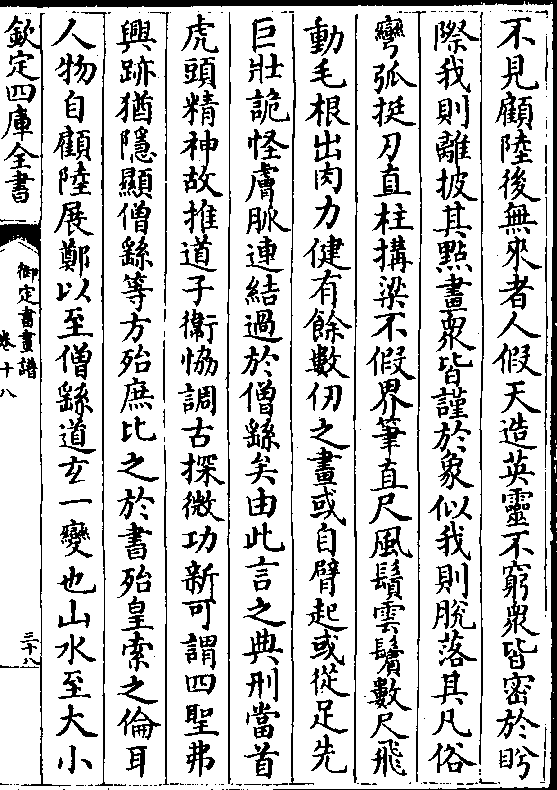 不見顧陸後無來者人假天造英靈不窮衆皆密於盻
際我則離披其點畫衆皆謹於象似我則脫落其凡俗
彎弧挺刃直柱搆梁不假界筆直尺風鬚雲鬢數尺飛
動毛根出肉力健有餘數仞之畫或自臂起或從足先
巨壯詭怪膚脈連結過於僧繇矣由此言之典刑當首
虎頭精神故推道子衛協調古探微功新可謂四聖弗
興跡猶隱顯僧繇等方殆庶比之於書殆皇索之倫耳
人物自顧陸展鄭以至僧繇道玄一變也山水至大小
欽定四庫全書
御定書畫譜
卷十八
三十八